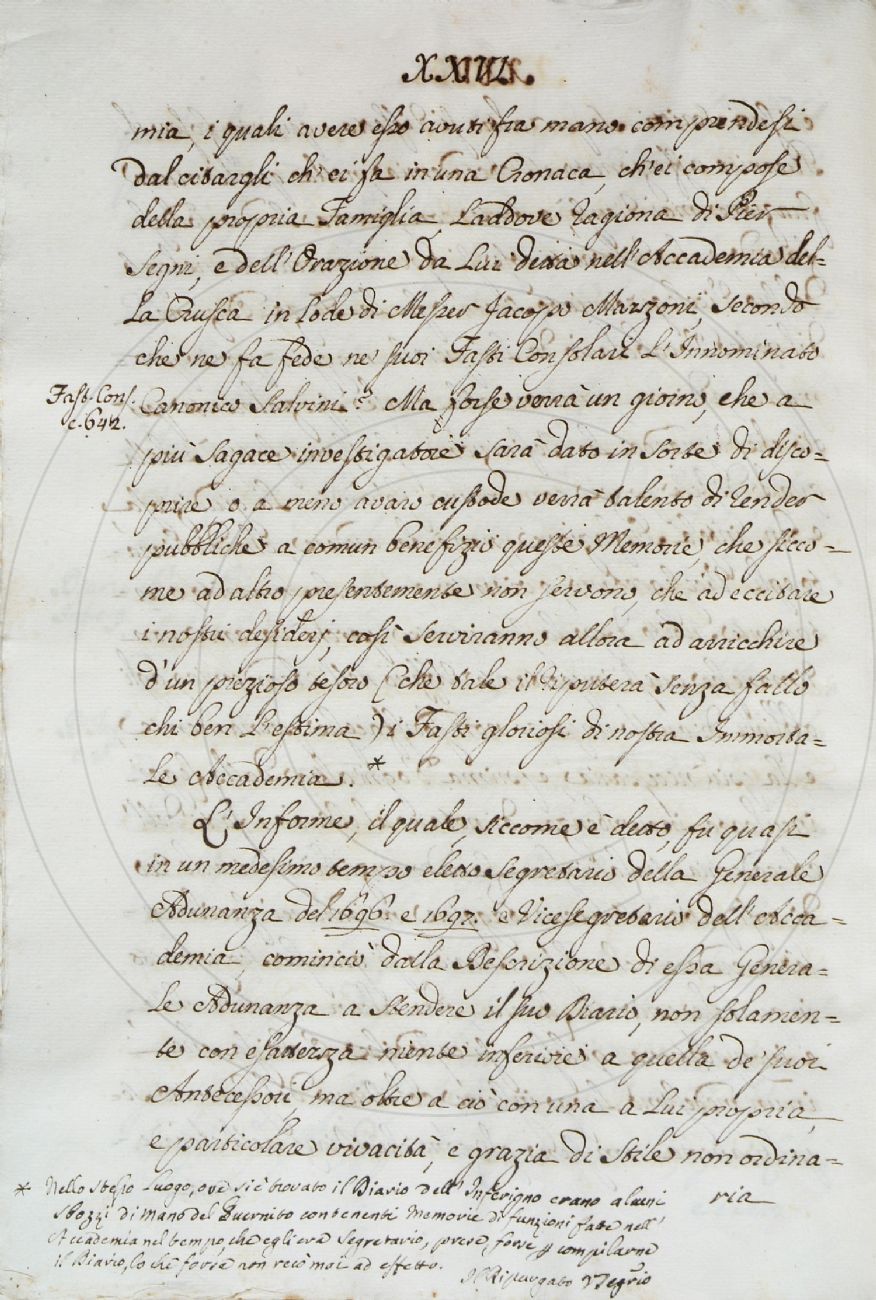 XXVII.
mia, i quali avere esso avuti fra mano comprendesi
dal citargli ch'ei fa in una Cronaca, ch'ei compose
della propria Famiglia, Laddove ragiona di Pier
Segni, e dell'Orazione da Lui detta nell'Accademia del-
la Crusca in lode di Messer Jacopo Mazzoni, secondo
che ne fa fede ne' suoi Fasti Consolari L'Innominato
Fast. Cons.
c. 642.
Canonico Salvini. Ma forse verrà un giorno, che a
più sagace investigatore sarà dato in sorte di disco-
prire o a meno avaro custode verrà talento di render
pubbliche a comun benefizio queste Memorie, che sicco-
me ad altro presentemente non servono, che ad eccitare
i nostri desiderj, così serviranno allora ad arricchire
d'un prezioso tesoro (che tale il riputerà senza fallo
chi ben L'estima) i Fasti gloriosi di nostra Immorta-
le Accademia. *
L'Informe, il quale, siccome è detto, fu quasi
in un medesimo tempo eletto Segretario della Generale
Adunanza del 1696. e 1697. e Vicesegretario dell'Acca-
demia, cominciò dalla Descrizione di essa Genera-
le Adunanza a stendere il suo Diario, non solamen-
te con esattezza niente inferiore a quella de' suoi
Antecessori, ma oltre a ciò con una a Lui propria,
e particolare vivacità, e grazia di stile non ordina-
ria
* Nello stesso Luogo, ove si è trovato il Diario dell'Inferigno erano alcuni
Sbozzi di mano del Guernito contenenti Memorie di funzioni fatte nell'
Accademia nel tempo, che egli era Segretario, prese forse p compilarne
il Diario, lo che forse non recò mai ad effetto.
Il Ripurgato Vseg.rio